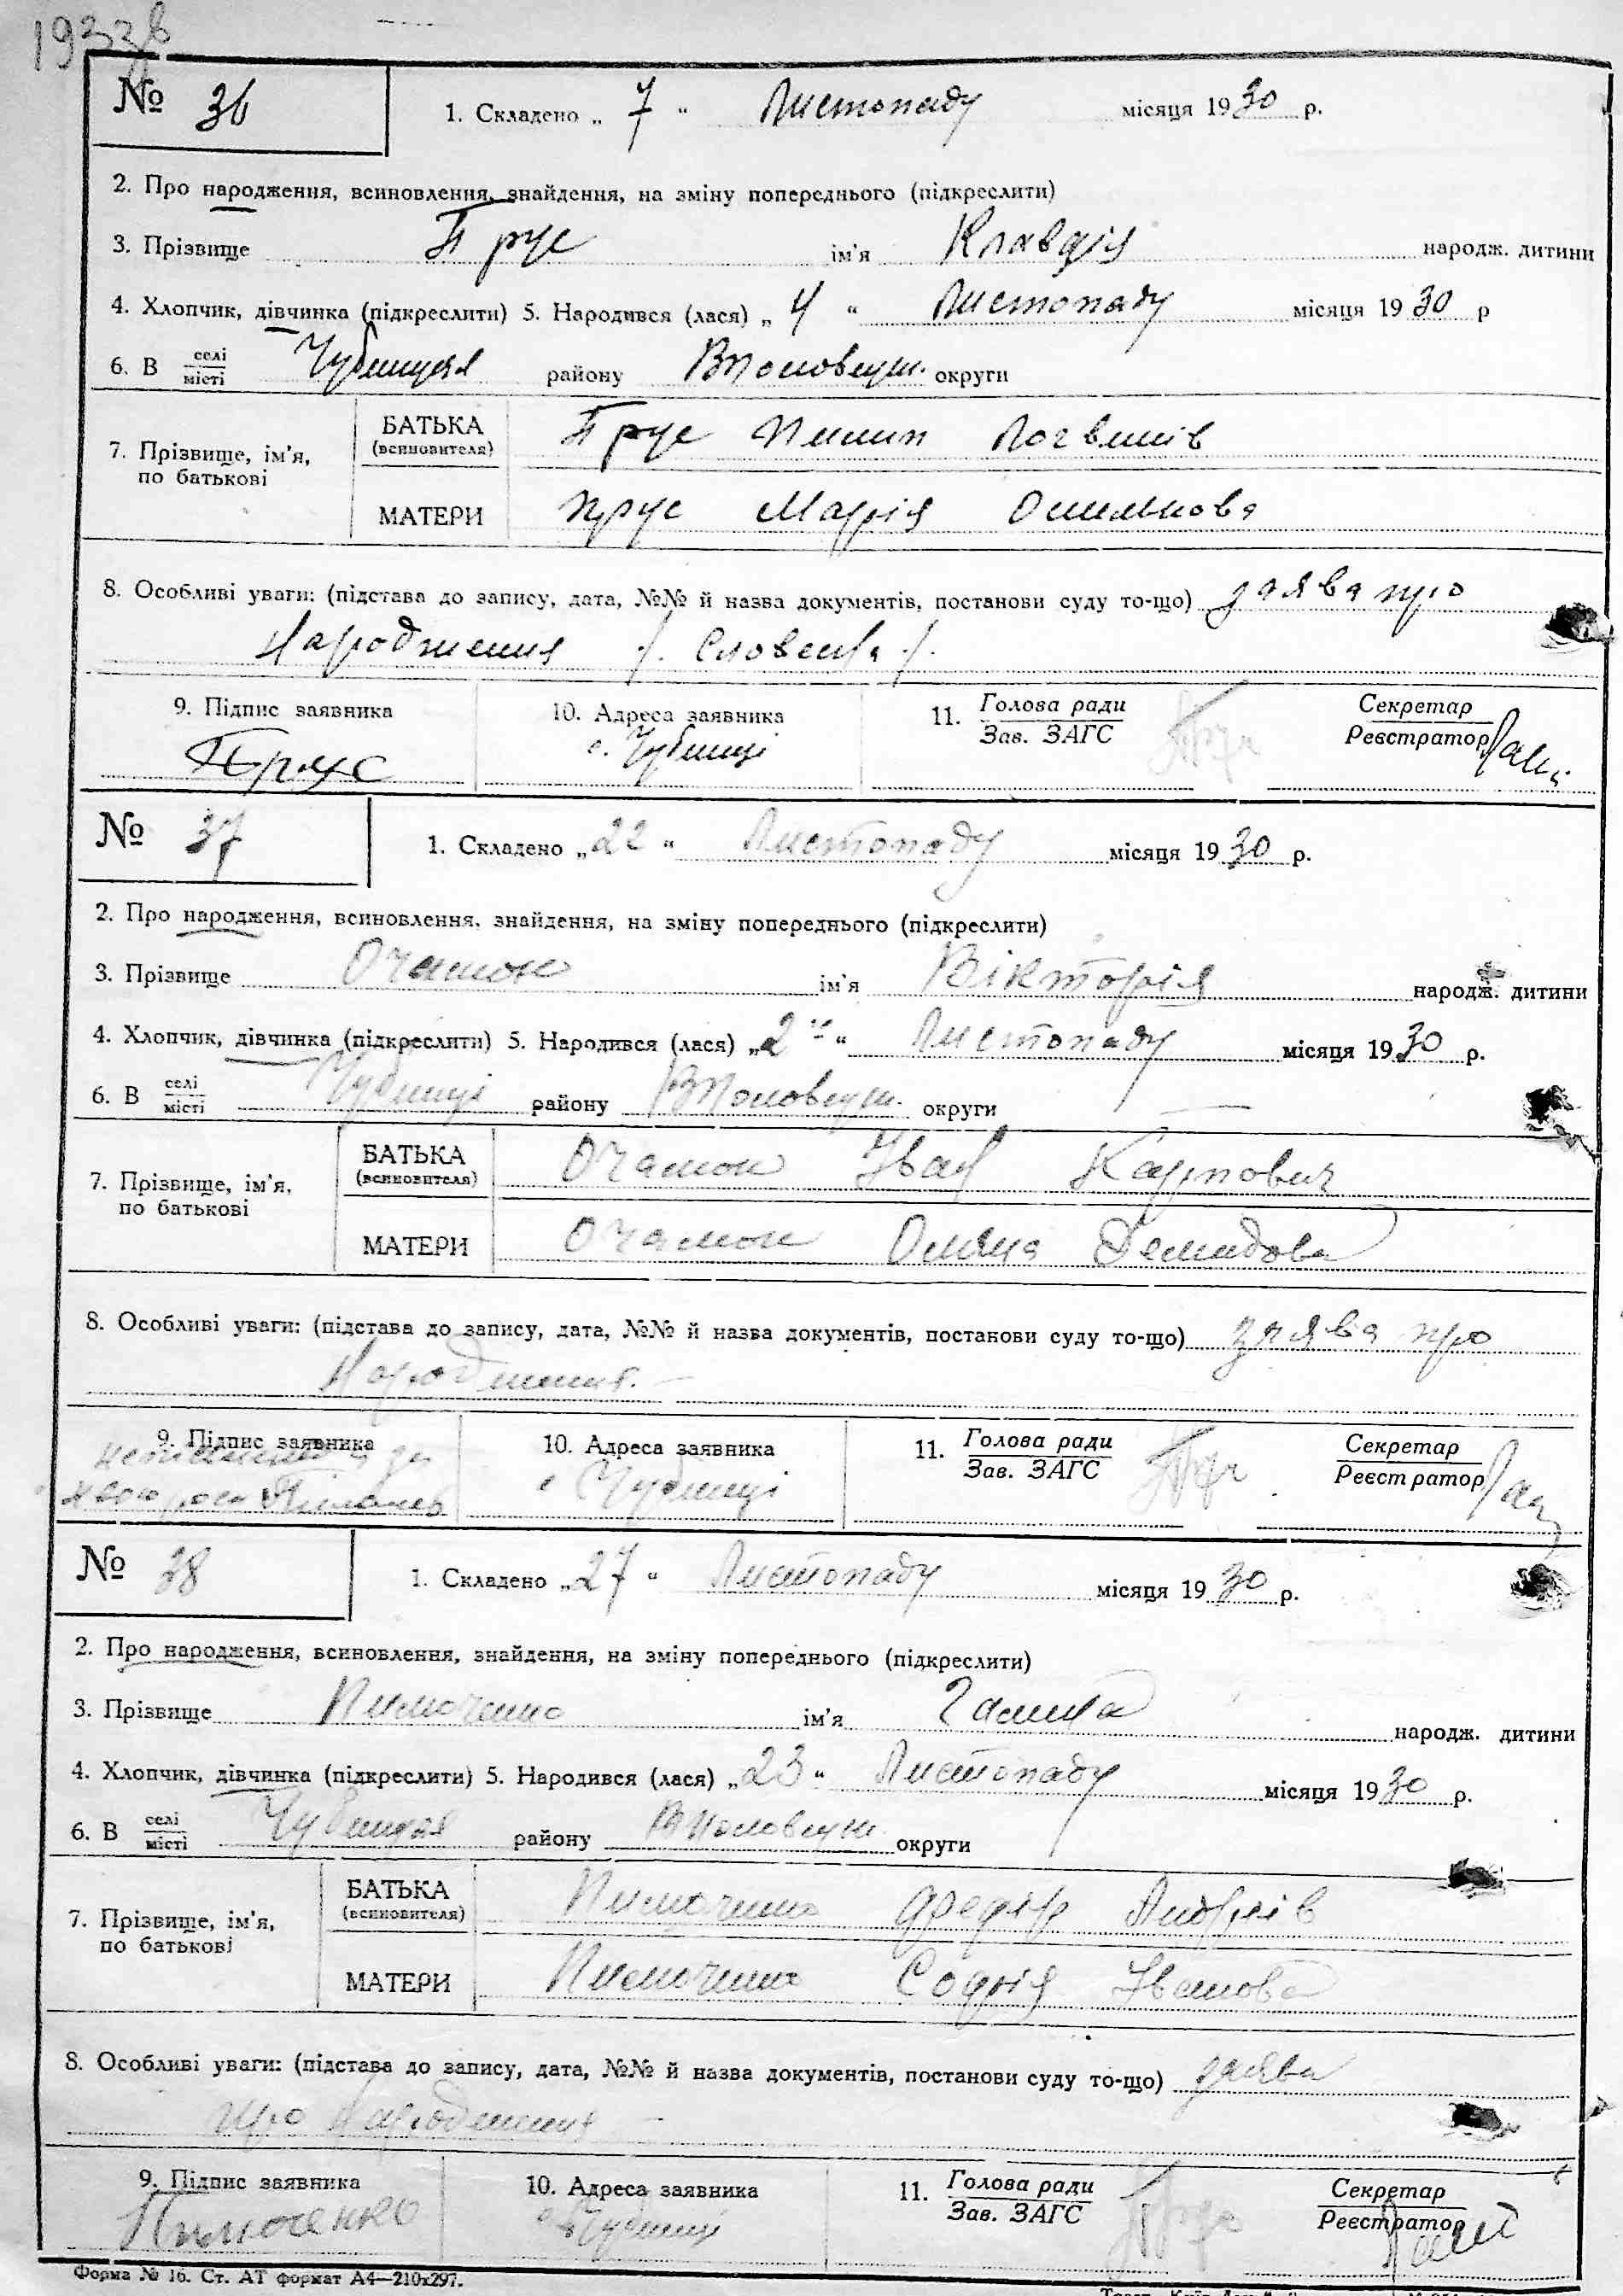 № 36
1. Складено „ 7 “ Листопаду місяця 1930 р.
2. Про народження, всиновлення, знайдення, на зміну попереднього (підкреслити)
3. Прізвище Прус ім'я Клавдія народж. дитини
4. Хлопчик, дівчинка (підкреслити) 5. Народився (лася) „ 4 “ Листопаду місяця 1930 р
6. В селі/місті Чубинцях району Вполовецьк. округи
7. Прізвище, ім'я, по батькові
БАТЬКА (всиновителя) Прус Пилип Логвинів
МАТЕРИ Прус Марія
8. Особливі уваги: (підстава до запису, дата, №№ й назва документів, постанови суду то-що) заява про
народження /. словесна /.
9. Підпис заявника 10. Адреса заявника 11. Голова ради/Зав. ЗАГС Секретар/Реєстратор
Прус с. Чубинці
№ 37
1. Складено „ 22 “ Листопаду місяця 1930 р.
2. Про народження, всиновлення, знайдення, на зміну попереднього (підкреслити)
3. Прізвище ім'я Вікторія народж. дитини
4. Хлопчик, дівчинка (підкреслити) 5. Народився (лася) „ “ Листопаду місяця 1930 р.
6. В селі/місті Чубинці району Вполовецьк. округи
7. Прізвище, ім'я, по батькові
БАТЬКА (всиновителя) Іван Карпович
МАТЕРИ Демидова
8. Особливі уваги: (підстава до запису, дата, №№ й назва документів, постанови суду то-що) заява про
народження.
9. Підпис заявника 10. Адреса заявника 11. Голова ради/Зав. ЗАГС Секретар/Реєстратор
с Чубинці
№ 38
1. Складено „ 27 “ Листопаду місяця 1930 р.
2. Про народження, всиновлення, знайдення, на зміну попереднього (підкреслити)
3. Прізвище ім'я Галина народж. дитини
4. Хлопчик, дівчинка (підкреслити) 5. Народився (лася) „ 23 “ Листопаду місяця 1930 р.
6. В селі/місті Чубинцях району Вполовецьк. округи
7. Прізвище, ім'я, по батькові
БАТЬКА (всиновителя) Федір Андріїв
МАТЕРИ Софія Іванова
8. Особливі уваги: (підстава до запису, дата, №№ й назва документів, постанови суду то-що) заява
про народження
9. Підпис заявника 10. Адреса заявника 11. Голова ради/Зав. ЗАГС Секретар/Реєстратор
с Чубинці
Форма № 16. Ст. АТ формат А4—210х297.